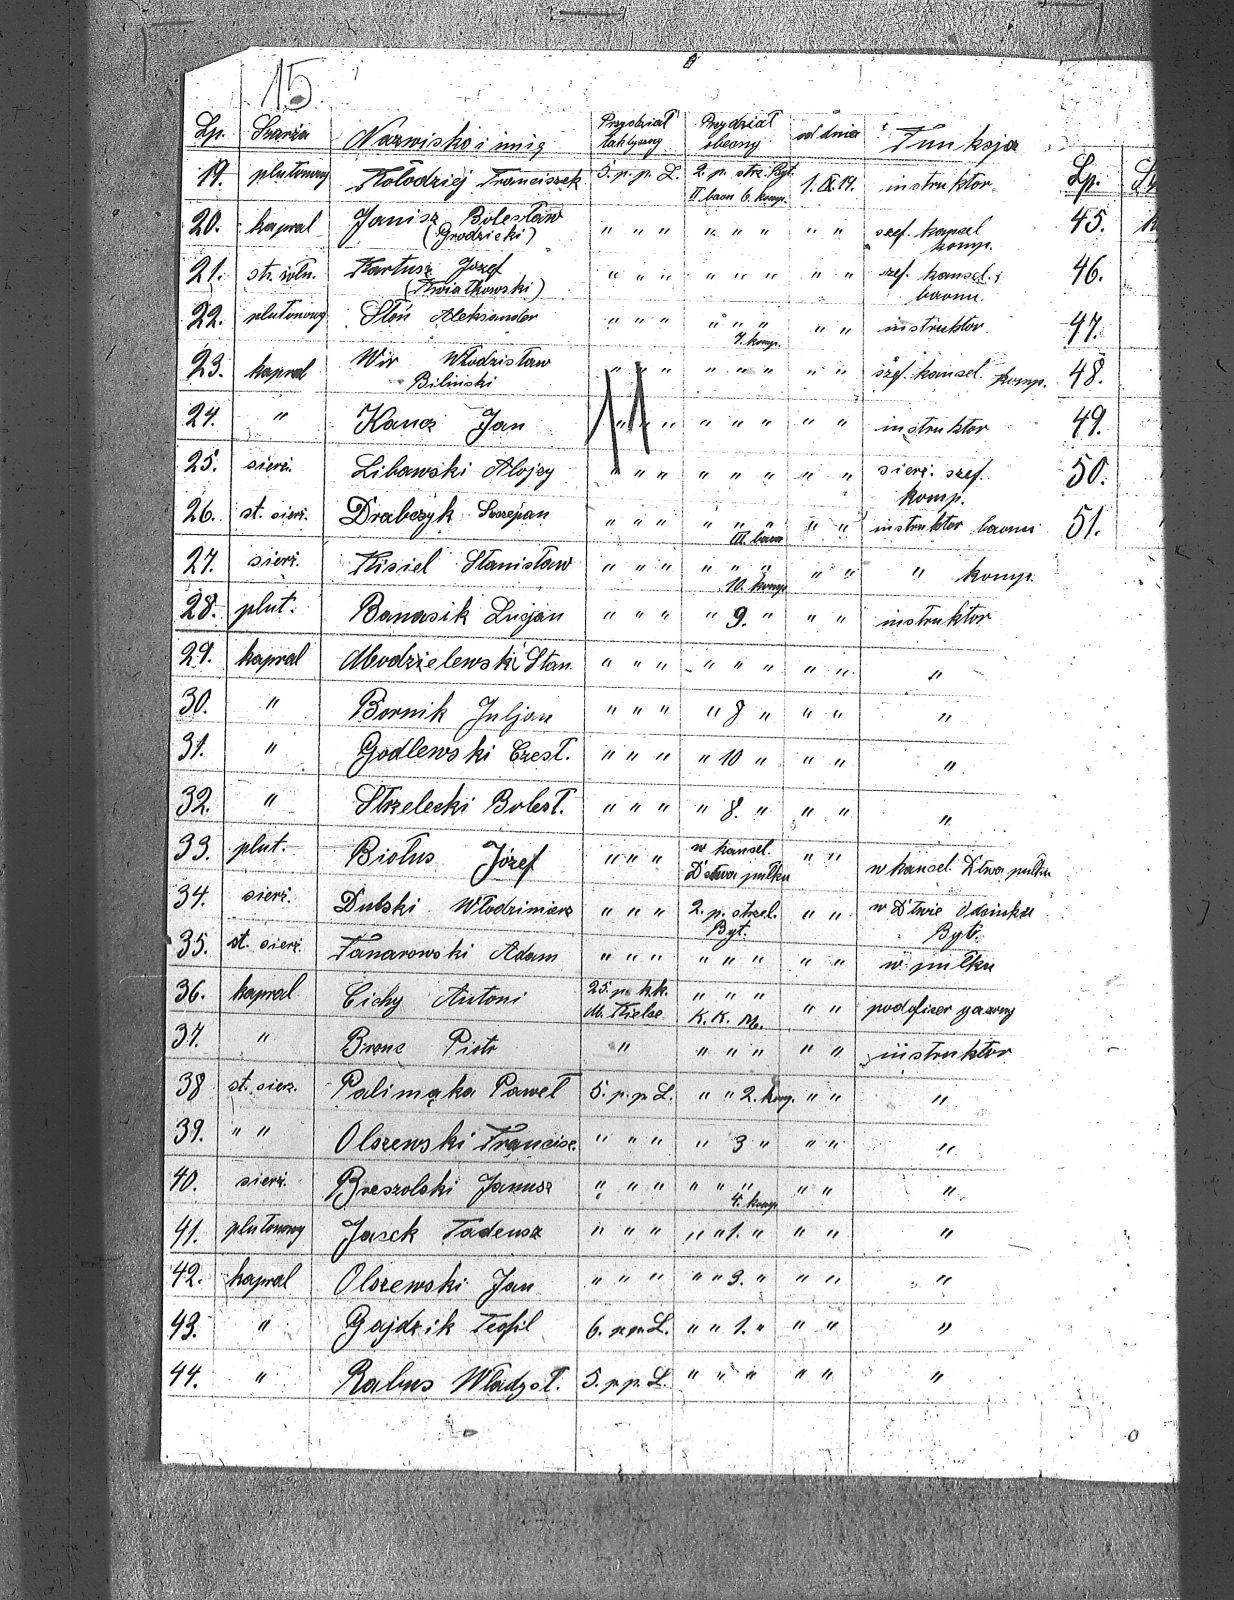 15
Lp. Szarża Nazwisko i imię Przydział taktyczny Przydział obecny od dnia Funkcja
19. plutonowy Kołodziej Franciszek 5. p. p. L. 2. p. strz. Byt. II baon 6. komp. 1. IX. 19. instruktor
20. kapral Janisz Bolesław (Grodzicki) " " " " " " " " szef. kancel. komp.
21. st. żołn. Kartusz Józef (Kwiatkowski) " " " " " " " " szef. kancel. baonu.
22. plutonowy Słoń Aleksander " " " " " " 7. komp. " " instruktor
23. kapral Wir Włodzisław Biliński " " " " " " " " szef. kancel. komp.
24. " Kancz Jan " " " " " " " " instruktor
25. sierż. Libawski Alojzy " " " " " " " " sierż. szef. komp.
26. st. sierż. Drabczyk Szczepan " " " " " " III. baon " " instruktor baonu
27. sierż. Kisiel Stanisław " " " " " " 10. komp " " " komp.
28. plut. Banasik Lucjan " " " " 9. " " " instruktor
29. kapral Modzielewski Stan. " " " " " " " " "
30. " Bornik Juljan " " " " 8 " " " "
31. " Godlewski Czesł. " " " " 10 " " " "
32. " Strzelecki Bolesł. " " " " 8. " " " "
33. plut. Biołus Józef " " " w kancel. D-twa pułku " " w kancel. D-twa pułku
34. sierż. Dubski Włodzimierz " " " 2. p. strzel. Byt. " " w D-twie Odcinka Byt.
35. st. sierż. Tanarowski Adam " " " " " " " " w pułku
36. kapral Cichy Antoni 25. p. k.k. M. Kielce " " " K. K. M. " " podoficer gazowy
37. " Bronc Piotr " " " " " " instruktor
38 st. sierż. Palimąka Paweł 5. p. p. L. " " 2. komp. " " "
39. " " Olszewski Francisz. " " " " 3 " " " "
40. sierż. Breszolski Janusz " " " " " " 4. komp " " "
41. plutonowy Jasek Tadeusz " " " " " 1. " " " "
42. kapral Olszewski Jan " " " " " 3. " " " "
43. " Gajdzik Teofil 6. p. p. L. " " 1. " " " "
44. " Rabus Władysł. 5. p. p. L. " " " " " "
Lp.
45.
46.
47.
48.
49.
50.
51.